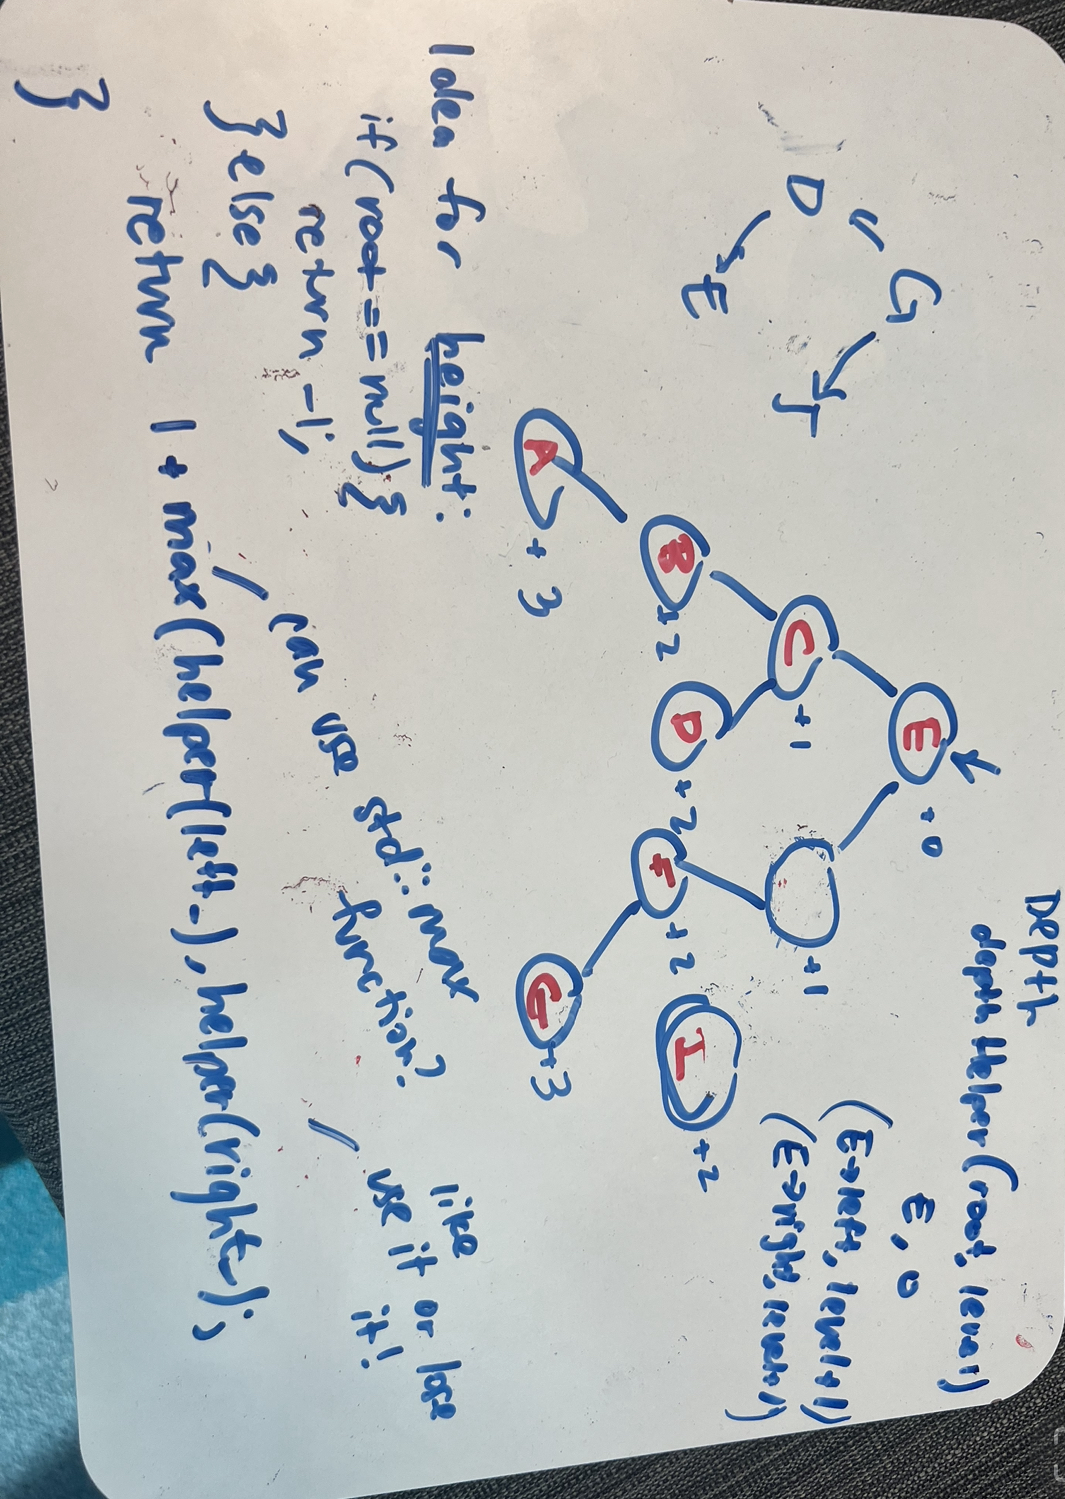 Depth
depthHelper(root, level)
E, 0
(E→left, level+1)
(E→right, level+1)
G
D
J
E
E
+0
C
+1
+1
B
+2
D
+2
F
+2
I
+2
A
+3
G
+3
Idea for height:
if (root == null) {
return -1;
} else {
return 1 + max(helper(left_), helper(right_);
}
can use std::max
function?
like
use it or lose
it!